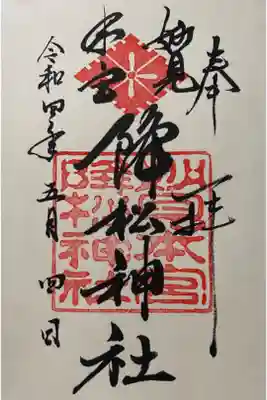 奉拝
妙見
本宮
降松神社
令和四年五月四日